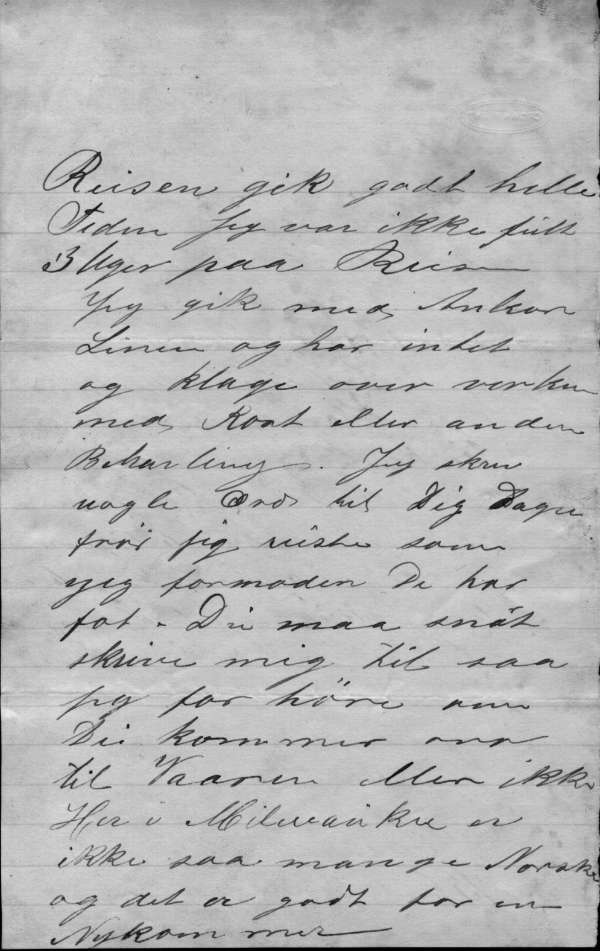 Reisen gik godt helle
Tiden Jeg var ikke fult
3 Uger paa Reisen
Jeg gik med Ankor
Linen og har intet
og klage over verken
med Kost eller anden
Behanling. Jeg skrev
nogle Ord til Dig Dagen
frör jeg reiste som
jeg formoden De har
fot. Du maa snat
skrive mig til saa
jeg for höre om
Du kommer over
til Vaaren eller ikke
Her i Milwaukee er
ikke saa mange Norske
og det er godt for en
Nykommer